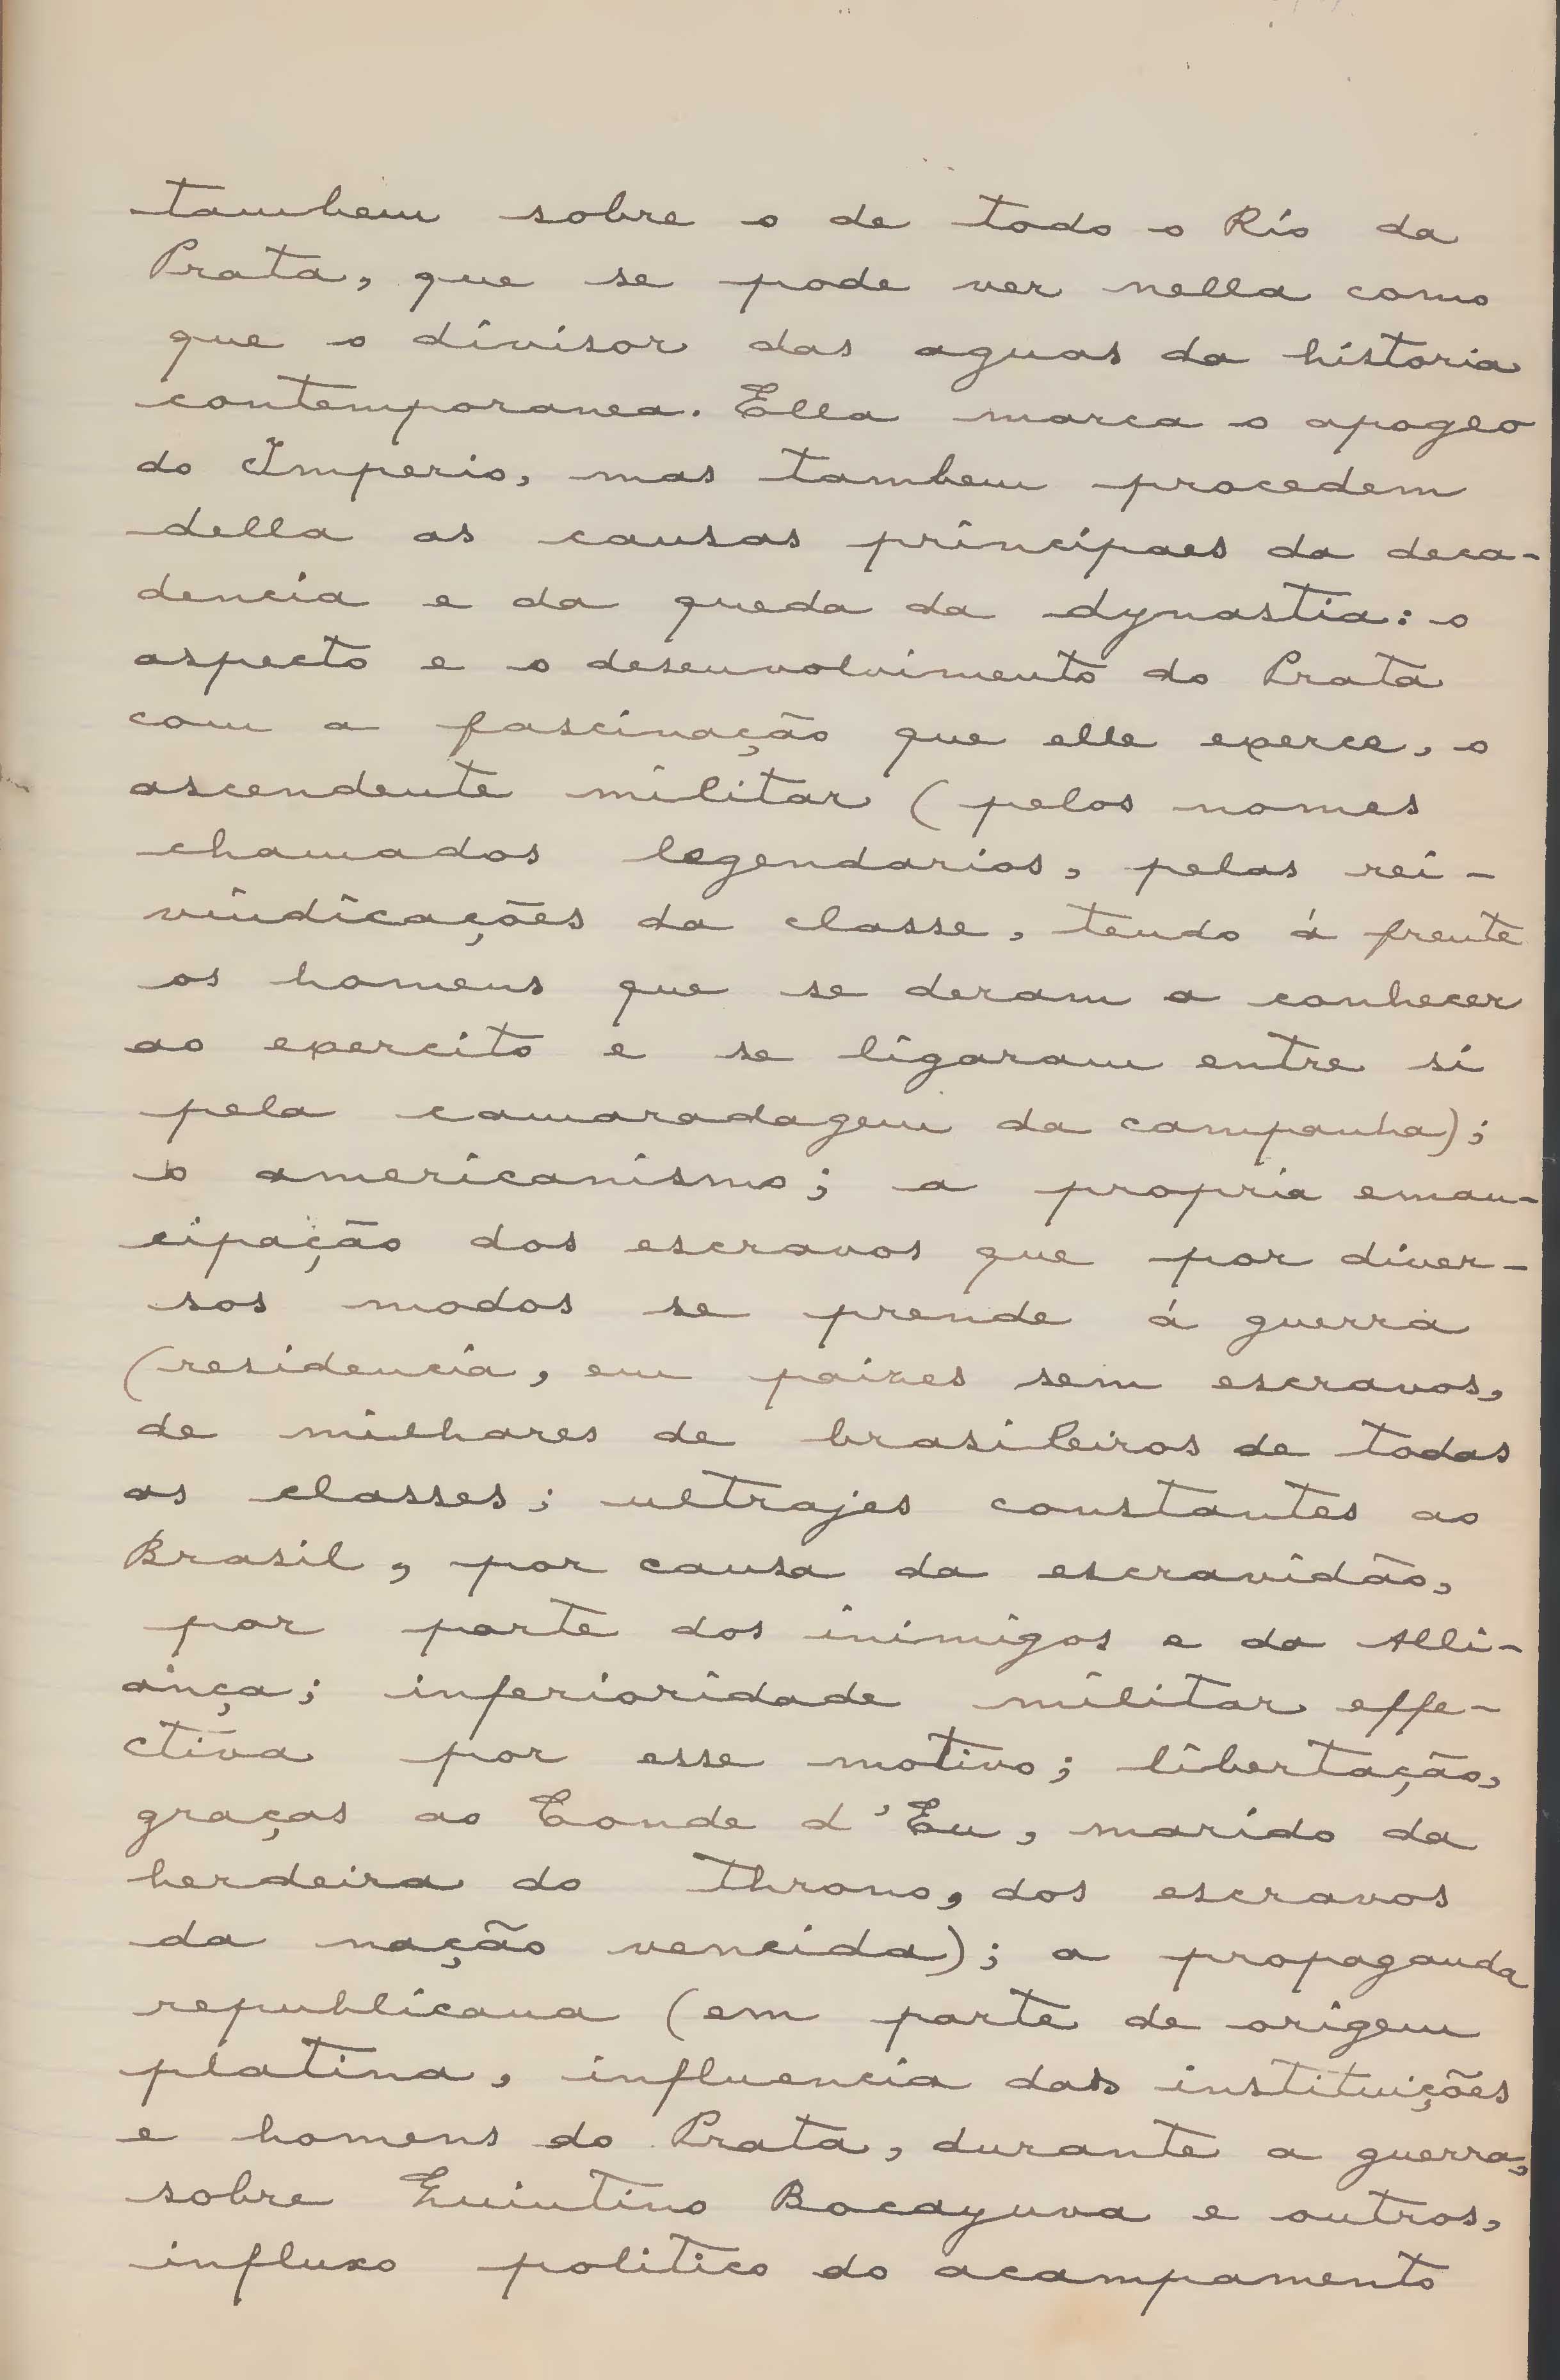 tambem sobre o de todo o Rio da
Prata, que se pode ver nella como
que o divisor das aguas da historia
contemporanea. Ella marca o apogeo
do Imperio, mas tambem procedem
della as causas principaes da deca-
dencia e da queda da dynastia: o
aspecto e o desenvolvimento do Prata
com a fascinação que elle exerce, o
ascendente militar (pelos nomes
chamados legendarios, pelas rei-
vindicações da classe, tendo á frente
os homens que se deram a conhecer
ao exercito e se ligaram entre si
pela camaradagem da campanha);
o americanismo; a propria eman-
cipação dos escravos que por diver-
sos modos se prende á guerra
(residencia, em paizes sem escravos,
de milhares de brasileiros de todas
as classes; ultrajes constantes ao
Brasil, por causa da escravidão,
por parte dos inimigos e da Alli-
ança; inferioridade militar effe-
ctiva por esse motivo; libertação,
graças ao Conde d'Eu, marido da
herdeira do throno, dos escravos
da nação vencida); a propaganda
republicana (em parte de origem
platina, influencia das instituições
e homens do Prata, durante a guerra,
sobre Quintino Bocayuva e outros,
influxo politico do acampamento